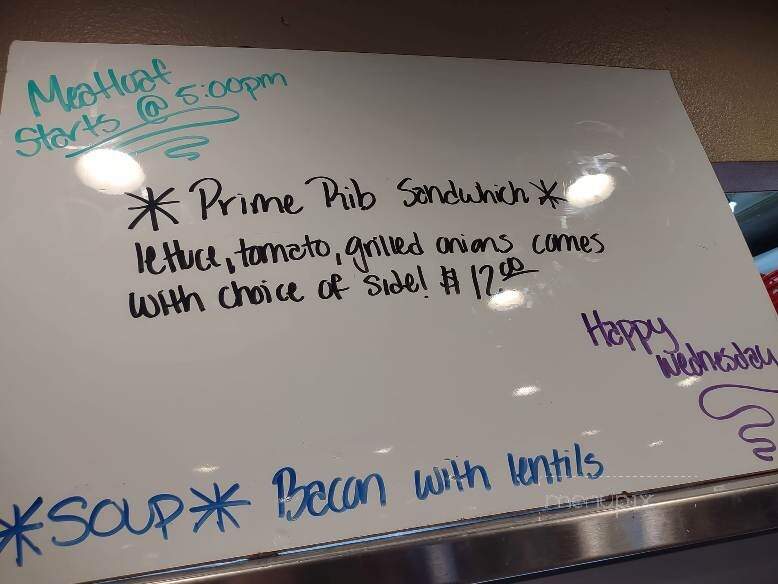 Meatloaf
Starts @ 5:00pm
* Prime Rib Sandwhich *
lettuce, tomato, grilled onions comes
with choice of side! $12.00
Happy
Wednesday
*SOUP* Bacon with lentils
menupix